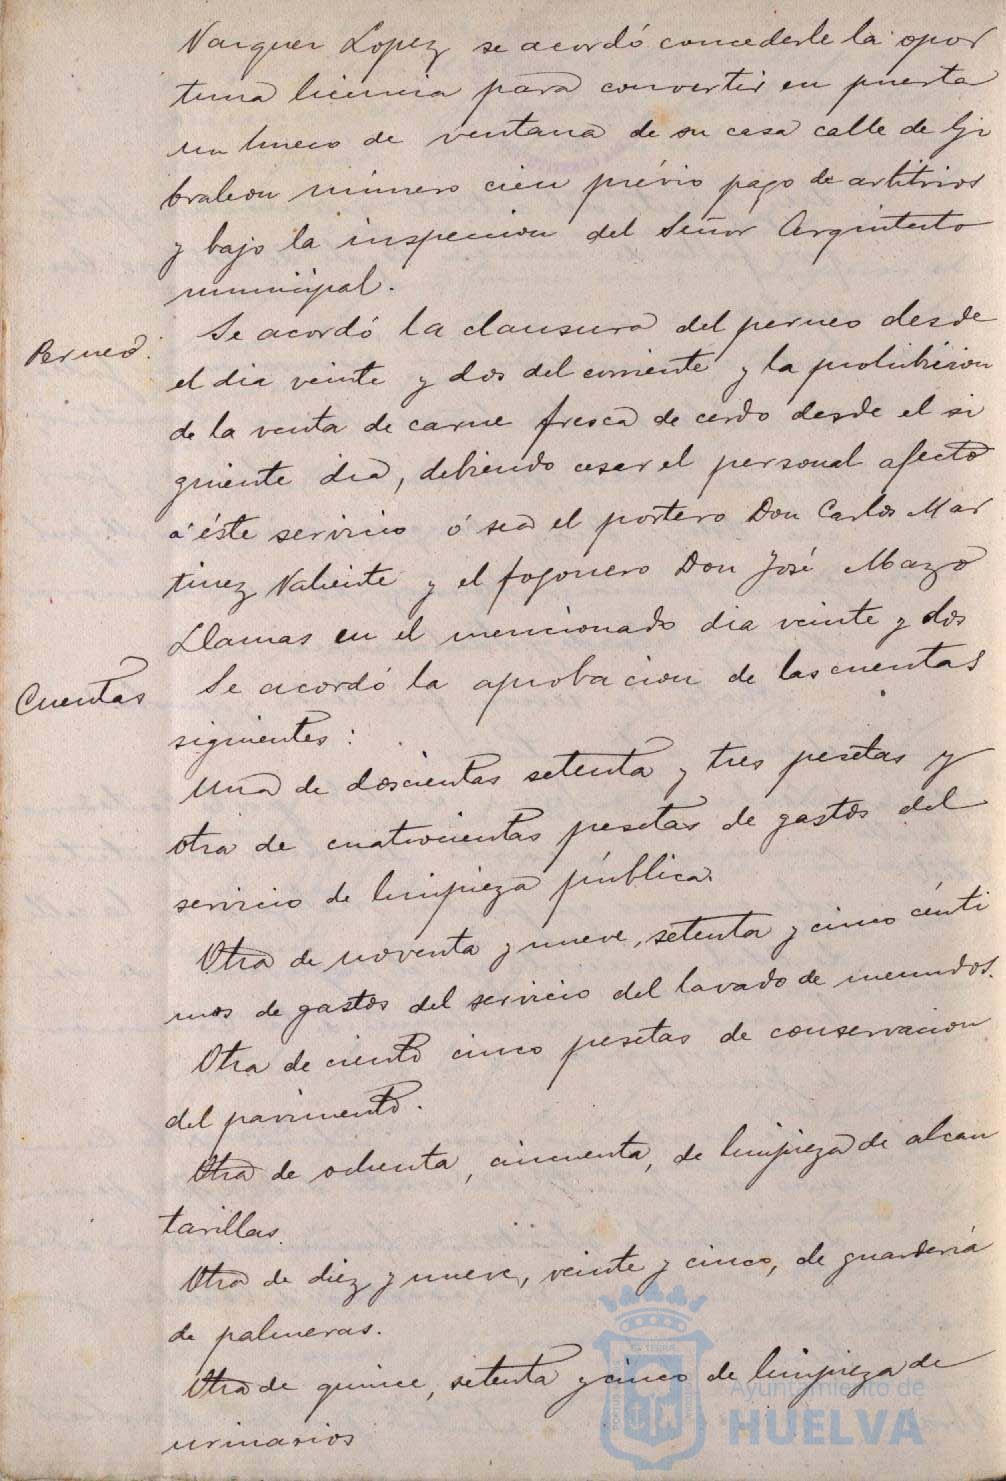 Vazquez Lopez se acordó concederle la opor
tuna licencia para convertir en puerta
un hueco de ventana de su casa calle de Gi
braleon número cien prévio pago de arbitrios
y bajo la inspeccion del Señor Arquitecto
municipal.
Perneo.
Se acordó la clausura del perneo desde
el dia veinte y dos del corriente y la prohibicion
de la venta de carne fresca de cerdo desde el si
guiente dia, debiendo cesar el personal afecto
á éste servicio ó sea el portero Don Carlos Mar
tinez Valiente y el fogonero Don José Mazo
Llamas en el mencionado dia veinte y dos
Cuentas
Se acordó la aprobacion de las cuentas
siguientes:
Una de doscientas setenta y tres pesetas y
otra de cuatrocientas pesetas de gastos del
servicio de limpieza pública.
Otra de noventa y nueve, setenta y cinco cénti
mos de gastos del servicio del lavado de menudos.
Otra de ciento cinco pesetas de conservacion
del pavimento.
Otra de ochenta, cincuenta, de limpieza de alcan
tarillas.
Otra de diez y nueve, veinte y cinco, de guardería
de palmeras.
Otra de quince, setenta y cinco de limpieza de
urinarios
Ayuntamiento de
HUELVA